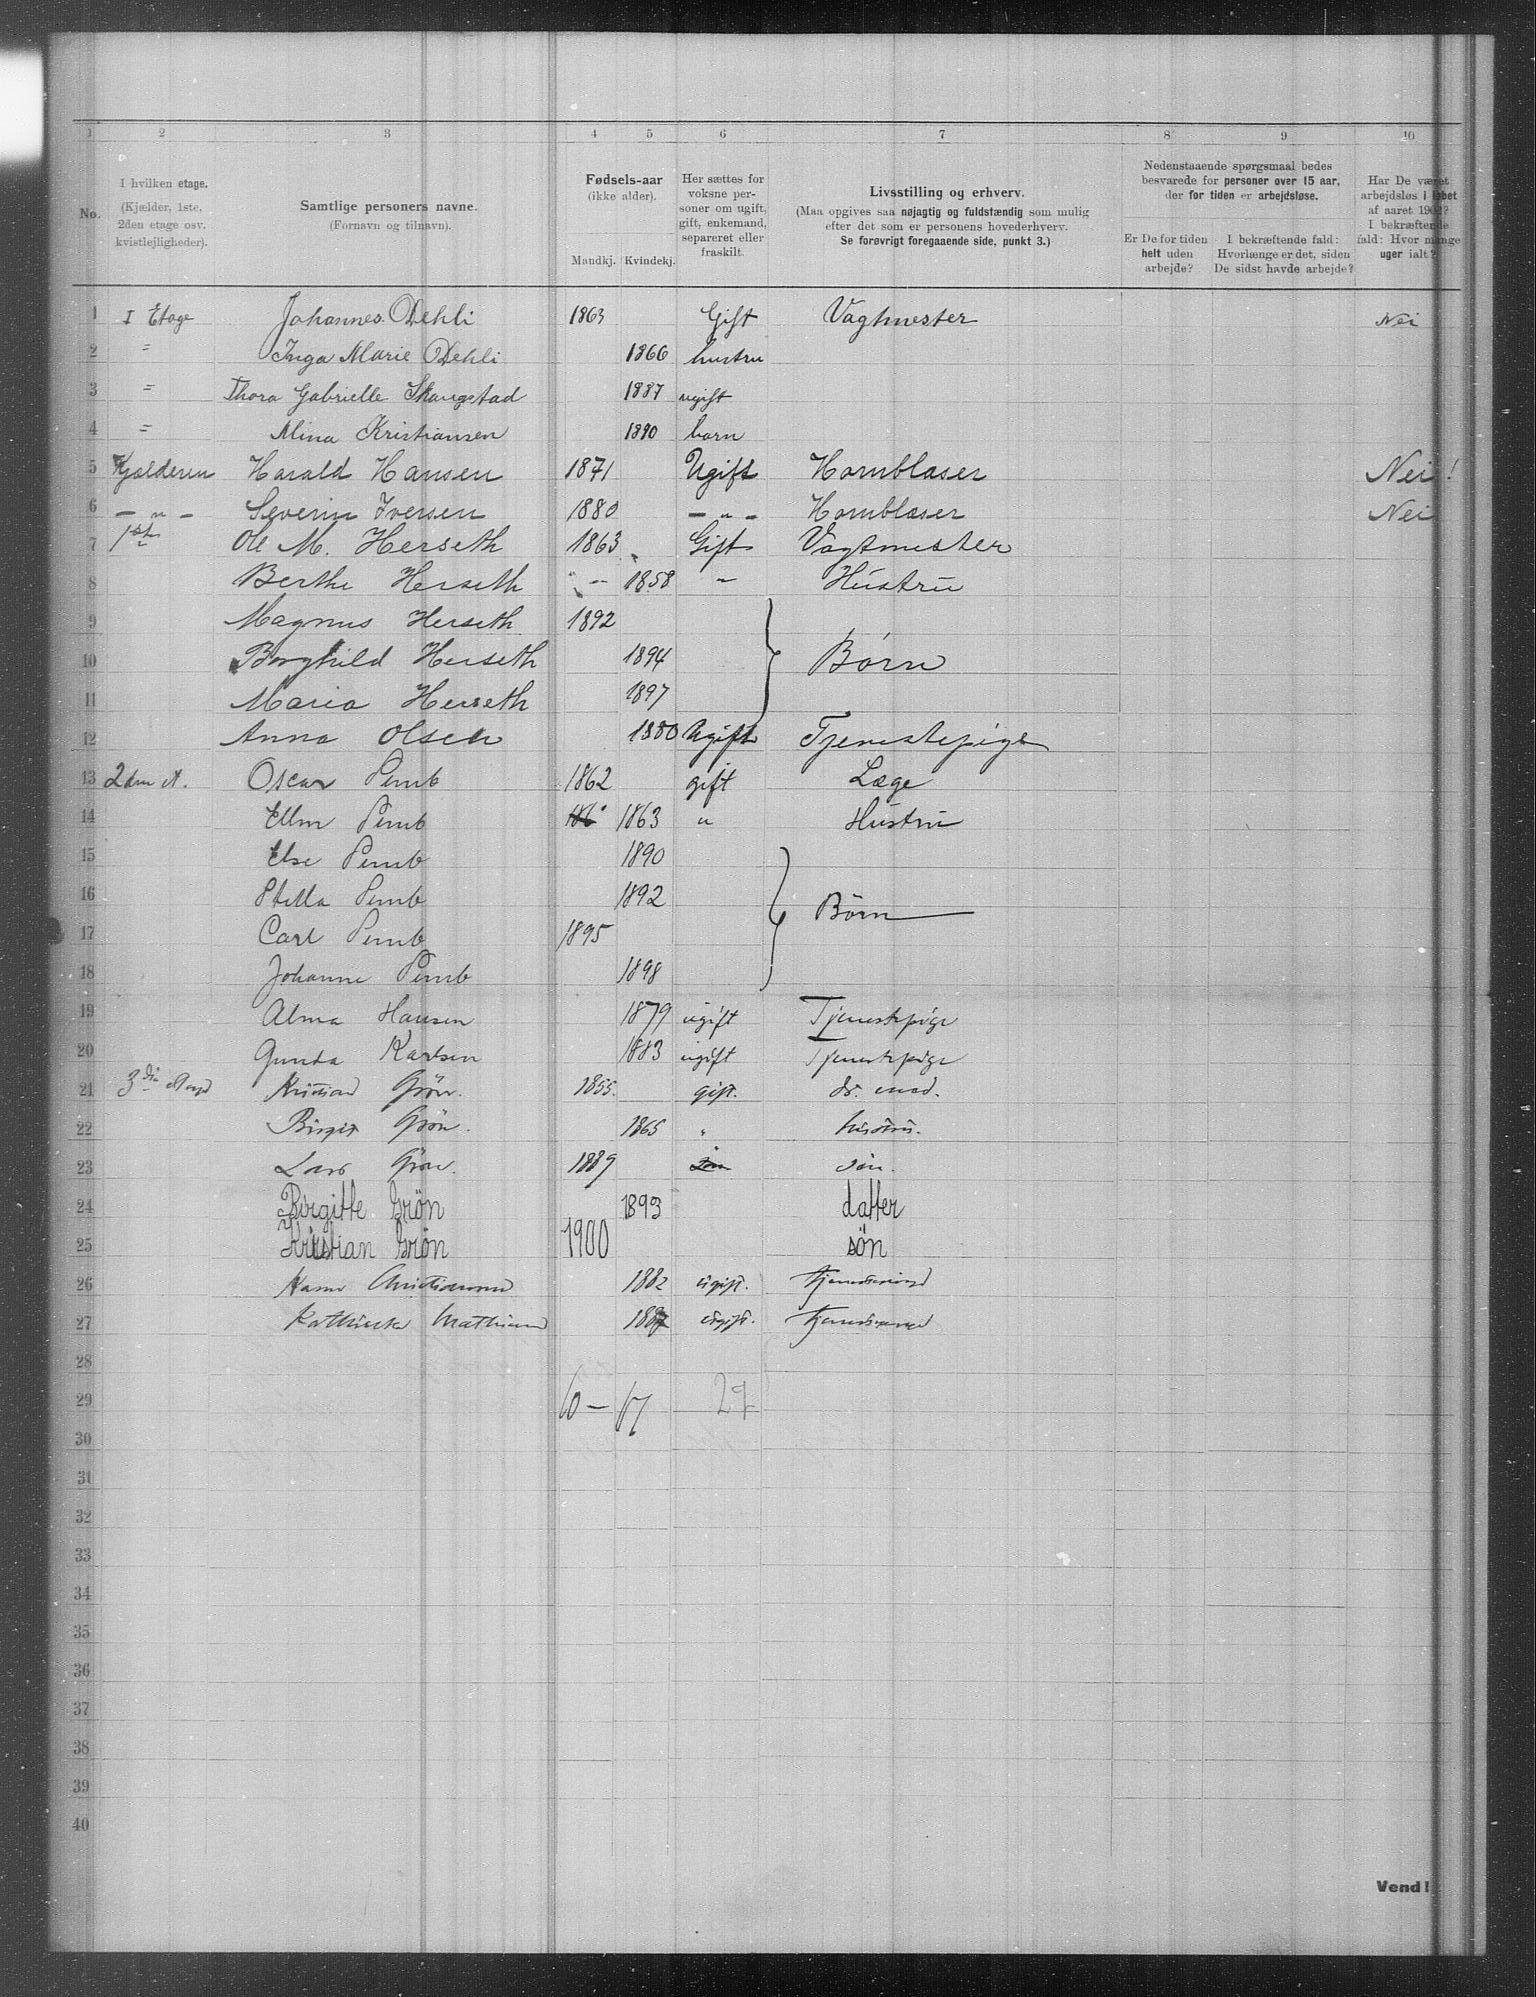 1 2 3 4 5 6 7 8 9 10
No.
I hvilken etage. (Kjælder, 1ste, 2den etage osv. kvistlejligheder).
Samtlige personers navne. (Fornavn og tilnavn).
Fødsels-aar (ikke alder). Mandkj. Kvindekj.
Her sættes for voksne personer om ugift, gift, enkemand, separeret eller fraskilt.
Livsstilling og erhverv. (Maa opgives saa nøjagtig og fuldstændig som mulig efter det som er personens hovederhverv. Se forøvrigt foregaaende side, punkt 3.)
Nedenstaaende spørgsmaal bedes besvarede for personer over 15 aar, der for tiden er arbejdsløse.
Er De for tiden helt uden arbejde?
I bekræftende fald: Hvorlænge er det, siden De sidst havde arbejde?
Har De været arbejdsløs i løbet af aaret 1902? I bekræftende fald: Hvor mange uger ialt?
1 I Etage Johannes Dehli 1863 Gift Vagtmester Nei
2 " Inga Marie Dehli 1866 hustru
3 " Thora Gabrielle Skaugstad 1887 ugift
4 " Mina Kristiansen 1890 barn
5 Kjælderen Harald Hansen 1871 Ugift Hornblaser Nei!
6 — " — Severin Iversen 1880 — " — Hornblaser Nei
7 1ste Ole M. Herseth 1863 Gift Vagtmester
8 Berthe Herseth " — 1858 " Hustru
9 Magnus Herseth 1892
10 Borghild Herseth 1894 Børn
11 Maria Herseth 1897
12 Anna Olsen 1880 Ugift Tjenestepige
13 2den et. Oscar Pemb 1862 gift Læge
14 Ellen Pemb 186 1863 " Hustru
15 Else Pemb 1890
16 Stella Pemb 1892 Børn
17 Carl Pemb 1895
18 Johanne Pemb 1898
19 Alma Hansen 1879 ugift Tjenestepige
20 Gunda Karlsen 1883 ugift Tjenestepige
21 3die Kristian Grön. 1855. gift. dr. med.
22 Birgit Grön. 1865 " hustru.
23 Lars Grön. 1889 sön sön.
24 Birgitte Grön 1893 datter
25 Kristian Grön 1900 søn
26 Christiansen 1882 ugift.
27 Kathinka Mathisen 1887 ugift.
28
29 10 — 17 27
30
31
32
33
34
35
36
37
38
39
40
Vend!